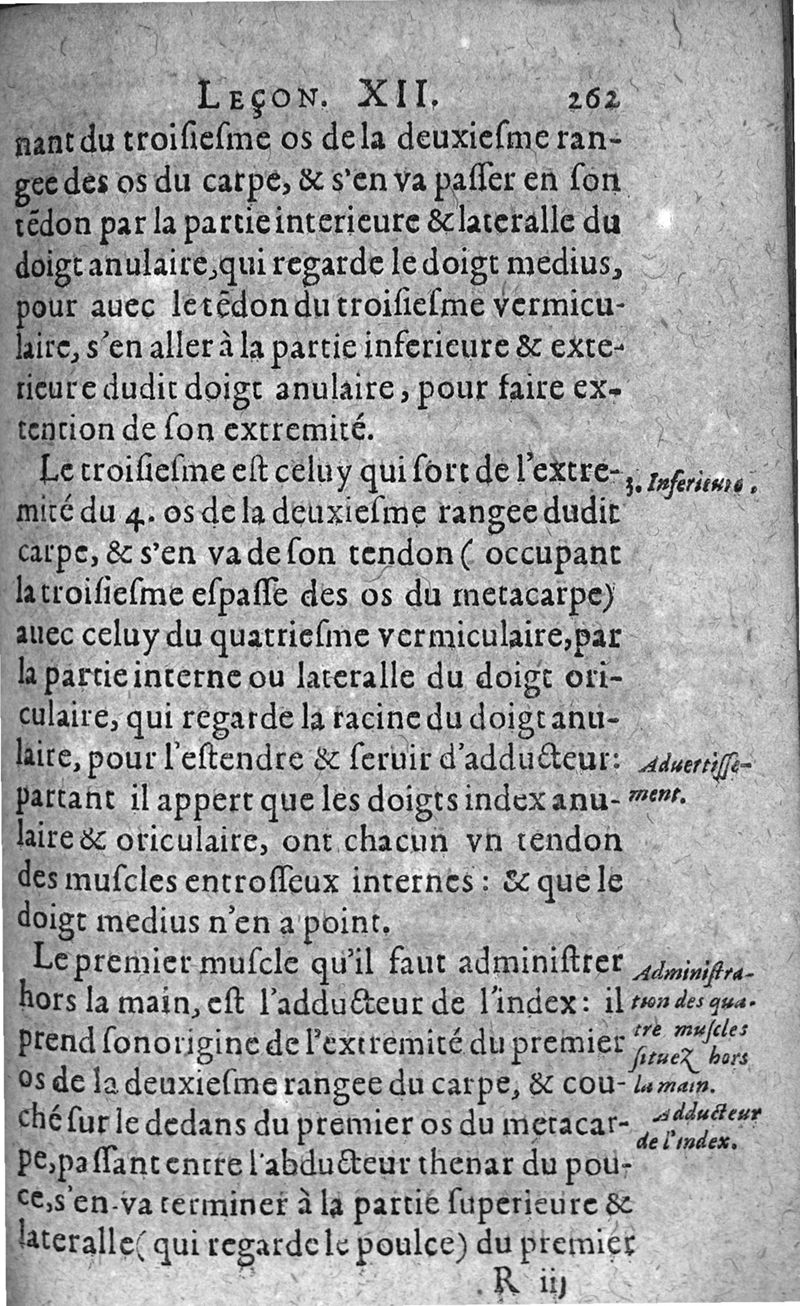 LEÇON. XII. 262
nant du troiſieſme os de la deuxieſme ran-
gee des os du carpe, & s'en va paſſer en ſon
tēdon par la partie interieure & lateralle du
doigt anulaire, qui regarde le doigt medius,
pour auec le tēdon du troiſieſme vermicu-
laire, s'en aller à la partie inferieure & exte-
rieure dudit doigt anulaire, pour faire ex-
tention de ſon extremité.
Le troiſieſme eſt celuy qui ſort de l'extre-
3. Inferieure.
mité du 4. os de la deuxieſme rangee dudit
carpe, & s'en va de ſon tendon ( occupant
la troiſieſme eſpaſſe des os du metacarpe)
auec celuy du quatrieſme vermiculaire, par
la partie interne ou lateralle du doigt ori-
culaire, qui regarde la racine du doigt anu-
laire, pour l'eſtendre & ſeruir d'adducteur:
partant il appert que les doigts index anu-
Aduertiſſe-
ment.
laire & oriculaire, ont chacun vn tendon
des muſcles entroſſeux internes : & que le
doigt medius n'en a point.
Le premier muſcle qu'il faut adminiſtrer
hors la main, eſt l'adducteur de l'index: il
prend ſon origine de l'extremité du premier
os de la deuxieſme rangee du carpe, & cou-
Adminiſtra-
tion des qua-
tre muſcles
ſituez hors
la main.
ché ſur le dedans du premier os du metacar-
pe, paſſant entre l'abducteur thenar du pou-
Adducteur
de l'index.
ce, s'en va terminer à la partie ſuperieure &
lateralle ( qui regarde le poulce) du premier
R iij